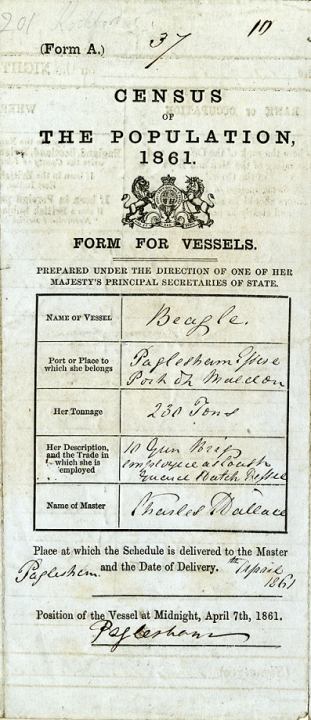 201
(Form A.)
37
10
CENSUS
OF
THE POPULATION,
1861.
FORM FOR VESSELS.
PREPARED UNDER THE DIRECTION OF ONE OF HER
MAJESTY'S PRINCIPAL SECRETARIES OF STATE.
NAME OF VESSEL
Beagle.
Port or Place to
which she belongs
Paglesham
Port of Maldon
Her Tonnage
230 Tons
Her Description,
and the Trade in
which she is
employed
10 Gun Brig
employed as Coast
Guard Watch Vessel
Name of Master
Charles Wallace
Place at which the Schedule is delivered to the Master
and the Date of Delivery.
Paglesham
April
1861
Position of the Vessel at Midnight, April 7th, 1861.
Paglesham